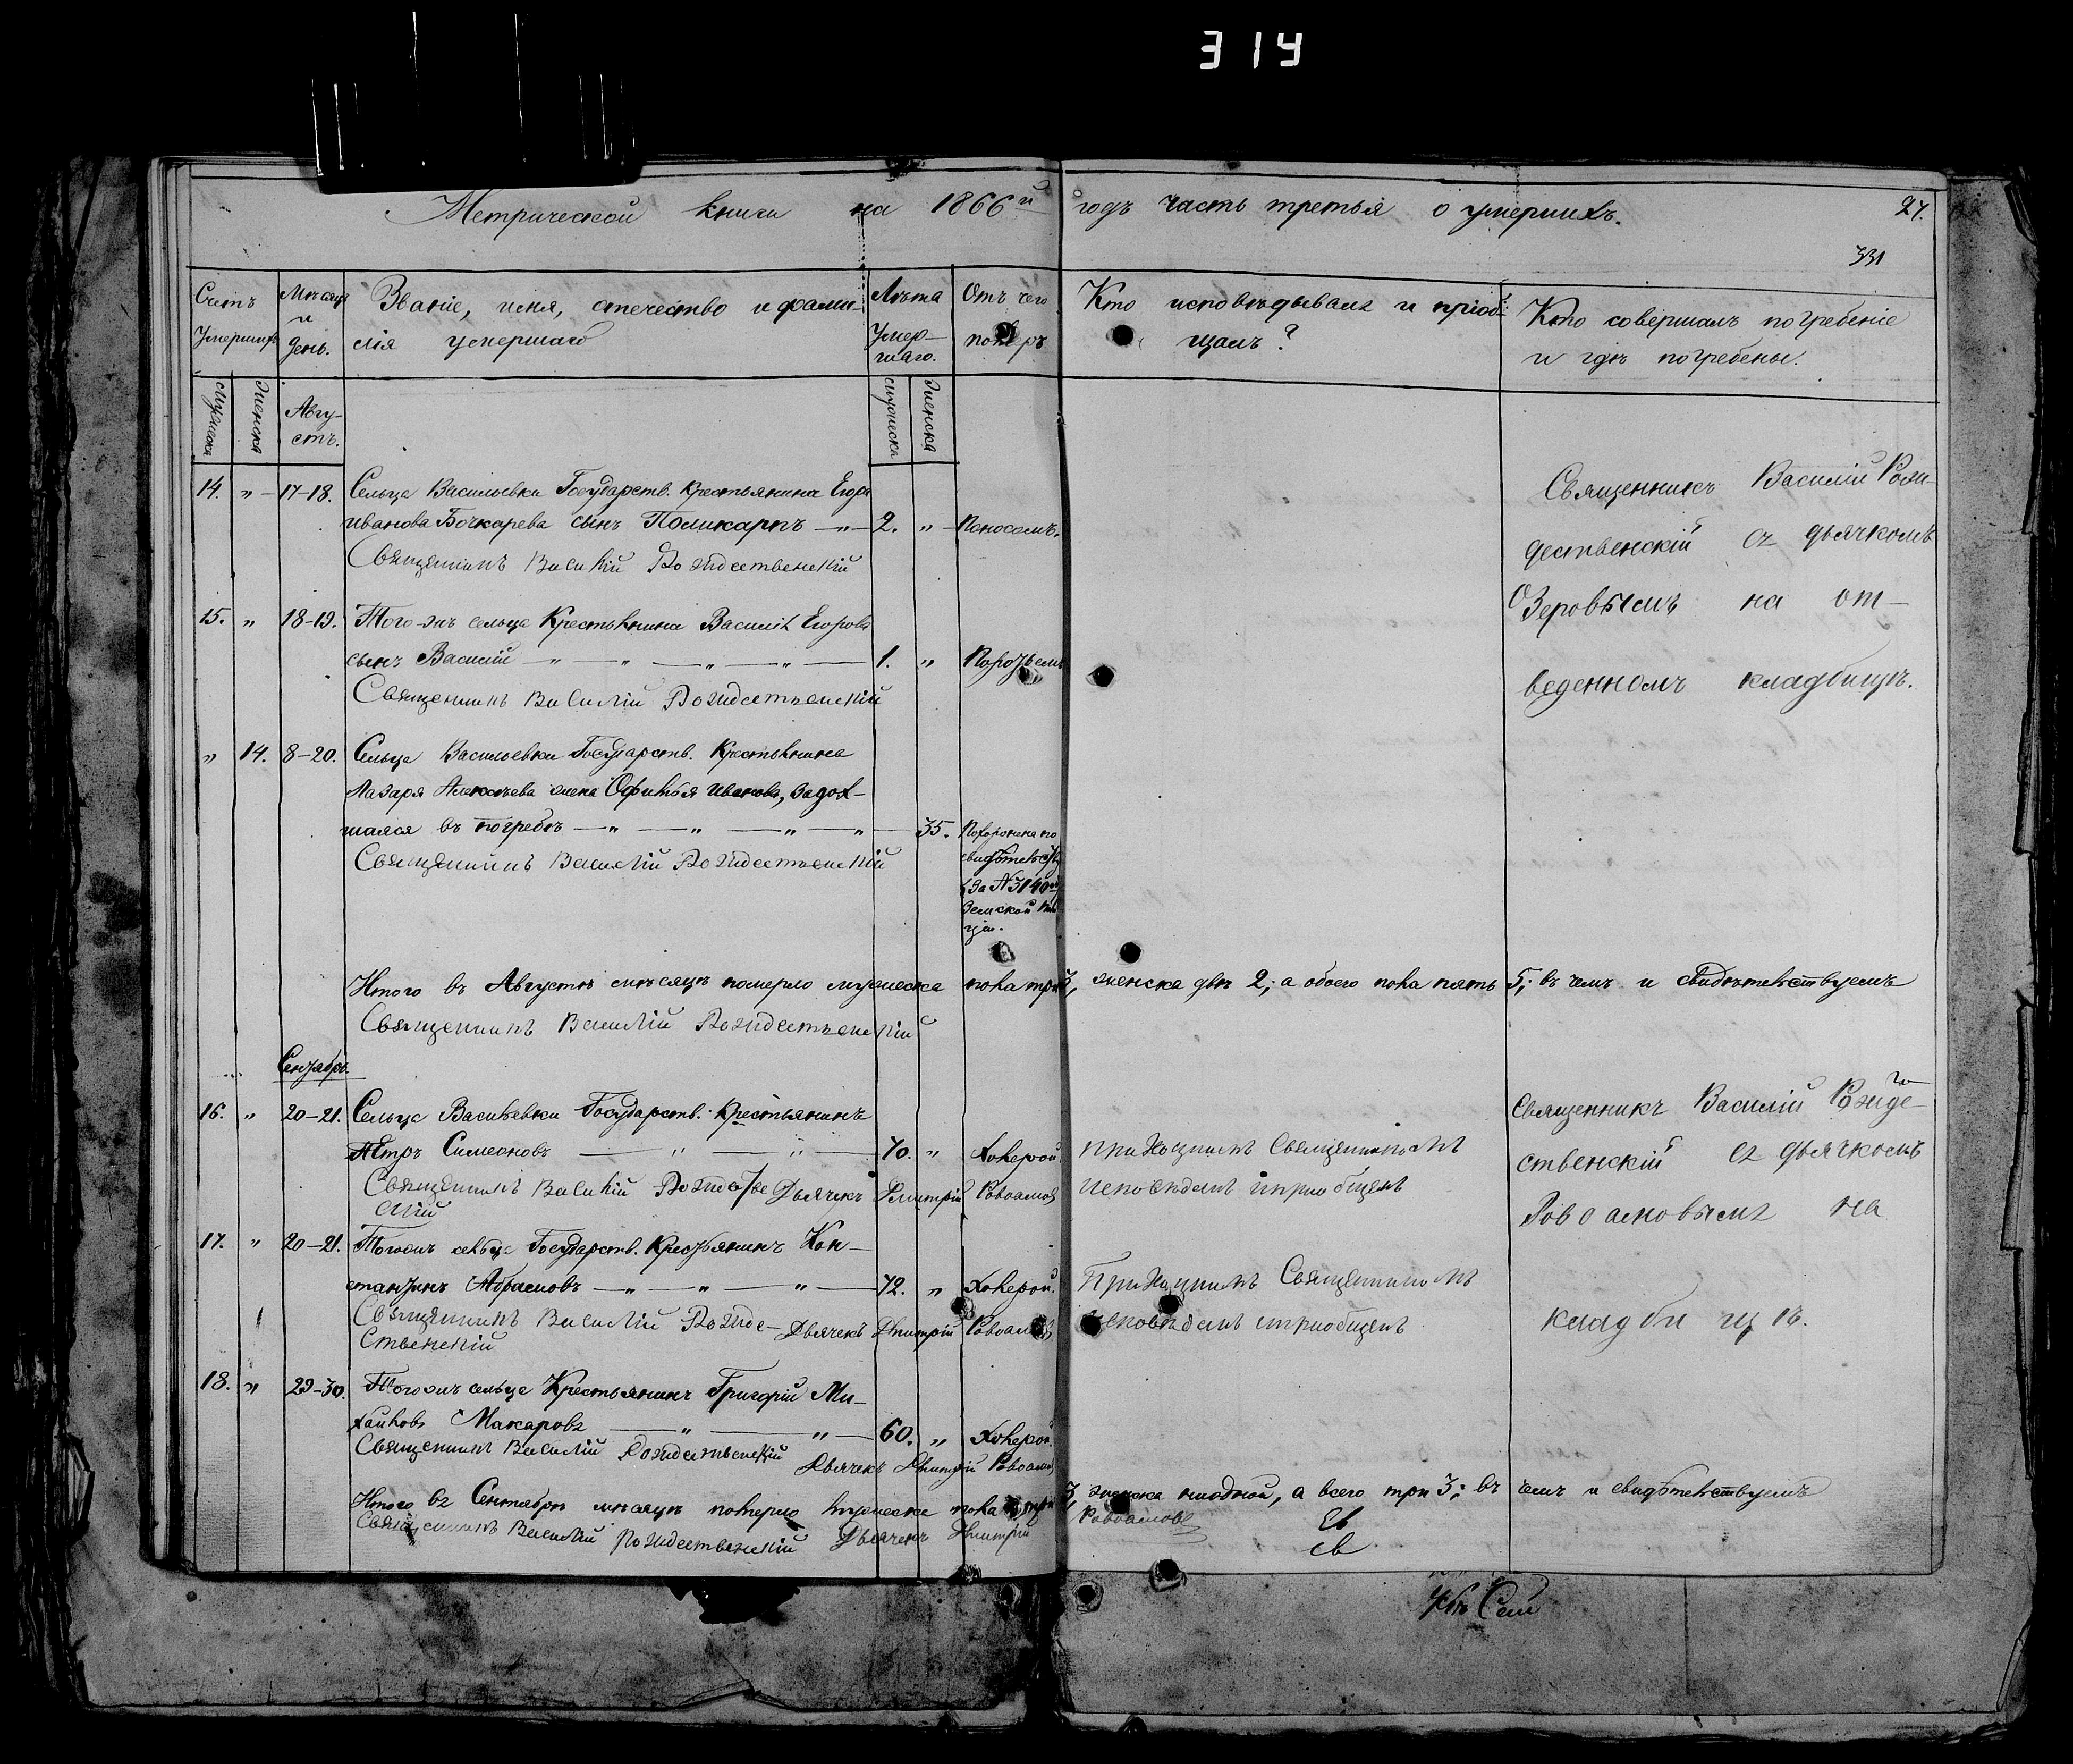 314
Метрической книги на 1866й годъ часть третья о умершихъ.
27.
331
Счетъ Умершихъ
Мѣсяцъ и день.
Званіе, имя, отечество и фами-
лія умершаго
Лѣта Умер-
шаго.
Отъ чего
померъ
Кто исповѣдывалъ и пріоб-
щалъ?
Кто совершалъ погребеніе
и гдѣ погребены.
мужеска
женска
Авгу-
стъ.
мужеска
женска
14. „ 17-18. Сельца Васильевки Государств. Крестьянина Егора
Иванова Бочкарева сынъ Поликарпъ — „ — 2. „ Поносомъ.
Священникъ Василій Рождественскій
Священникъ Василій Рож-
дественскій съ дьячкомъ
Озеровымъ на от-
веденномъ кладбищѣ.
15. „ 18-19. Того-жъ сельца Крестьянина Василія Егорова
сынъ Василій — „ — „ — „ — „ — 1. „
Священникъ Василій Рождественскій
„ 14. 8-20. Сельца Васильевки Государств. Крестьянина
Лазаря Алексѣева жена Офимья Иванова, задох-
шаяся въ погребѣ — „ — „ — „ — „ — 35. Похоронена по
свидѣтельству
за №3140й
Земской
Священникъ Василій Рождественскій
Итого въ Августѣ мѣсяцѣ померло мужеска пола три 3, женска двѣ 2; а обоего пола пять 5; въ чемъ и свидѣтельствуемъ
Священникъ Василій Рождественскій
Сентябрь.
16. „ 20-21. Сельца Васильевки Государств. Крестьянинъ
Петръ Симеоновъ — „ — „ — 70. „ Холерой.
Священникъ Василій Рождестве Дьячекъ Дмитрій Ровоамовъ
скій
Приходскимъ Священникомъ
исповѣданъ и пріобщенъ
Священникъ Василій Рожде-
ственскій съ дьячкомъ
Ровоамовымъ на
кладбищѣ.
17. „ 20-21. Тогожъ сельца Государств. Крестьянинъ Кон-
стантинъ Абрамовъ — „ — „ — „ — 72. „ Холерой.
Священникъ Василій Рожде- Дьячекъ Дмитрій Ровоамовъ
ственскій
Приходскимъ Священникомъ
исповѣданъ и пріобщенъ
18. „ 29-30. Тогожъ сельца Крестьянинъ Григорій Ми-
хайловъ Макаровъ — „ — „ — 60. „ Холерой.
Священникъ Василій Рождественскій Дьячекъ Дмитрій Ровоамовъ
Итого въ Сентябрѣ мѣсяцѣ померло мужеска пола три 3, женска ниодной, а всего три 3; въ чемъ и свидѣтельствуемъ
Священникъ Василій Рождественскій Дьячекъ Дмитрій Ровоамовъ